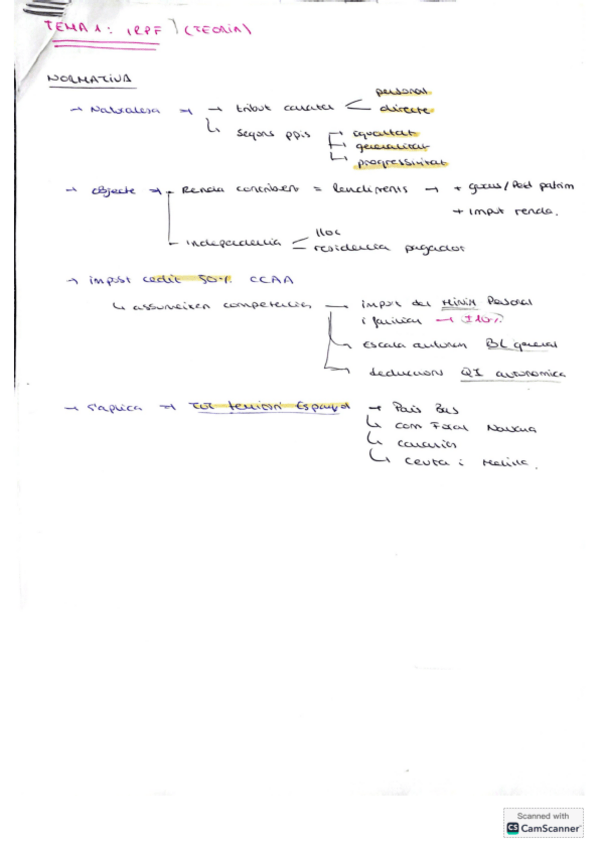 TEMA 1: IRPF (TEORIA)
NORMATIVA
→ Naturalesa → → tribut caràcter personal
directe
↳ segons ppis equaltat
generalitat
progressivitat
→ objecte → Renda contribuent = Rendiments → + guanys/Perd patrim
+ imput renda.
independència lloc
residència pagador
→ impost cedit 50% CCAA
↳ assumeixen competències import del MÍNIM Personal
i familiar → ±10%
escala autonom BL general
deduccions QI autonomica
→ s'aplica → TOT territori Espanyol → País Bas
↳ com Foral Navarra
↳ canaries
↳ ceuta i Melilla.
Scanned with
CS CamScanner